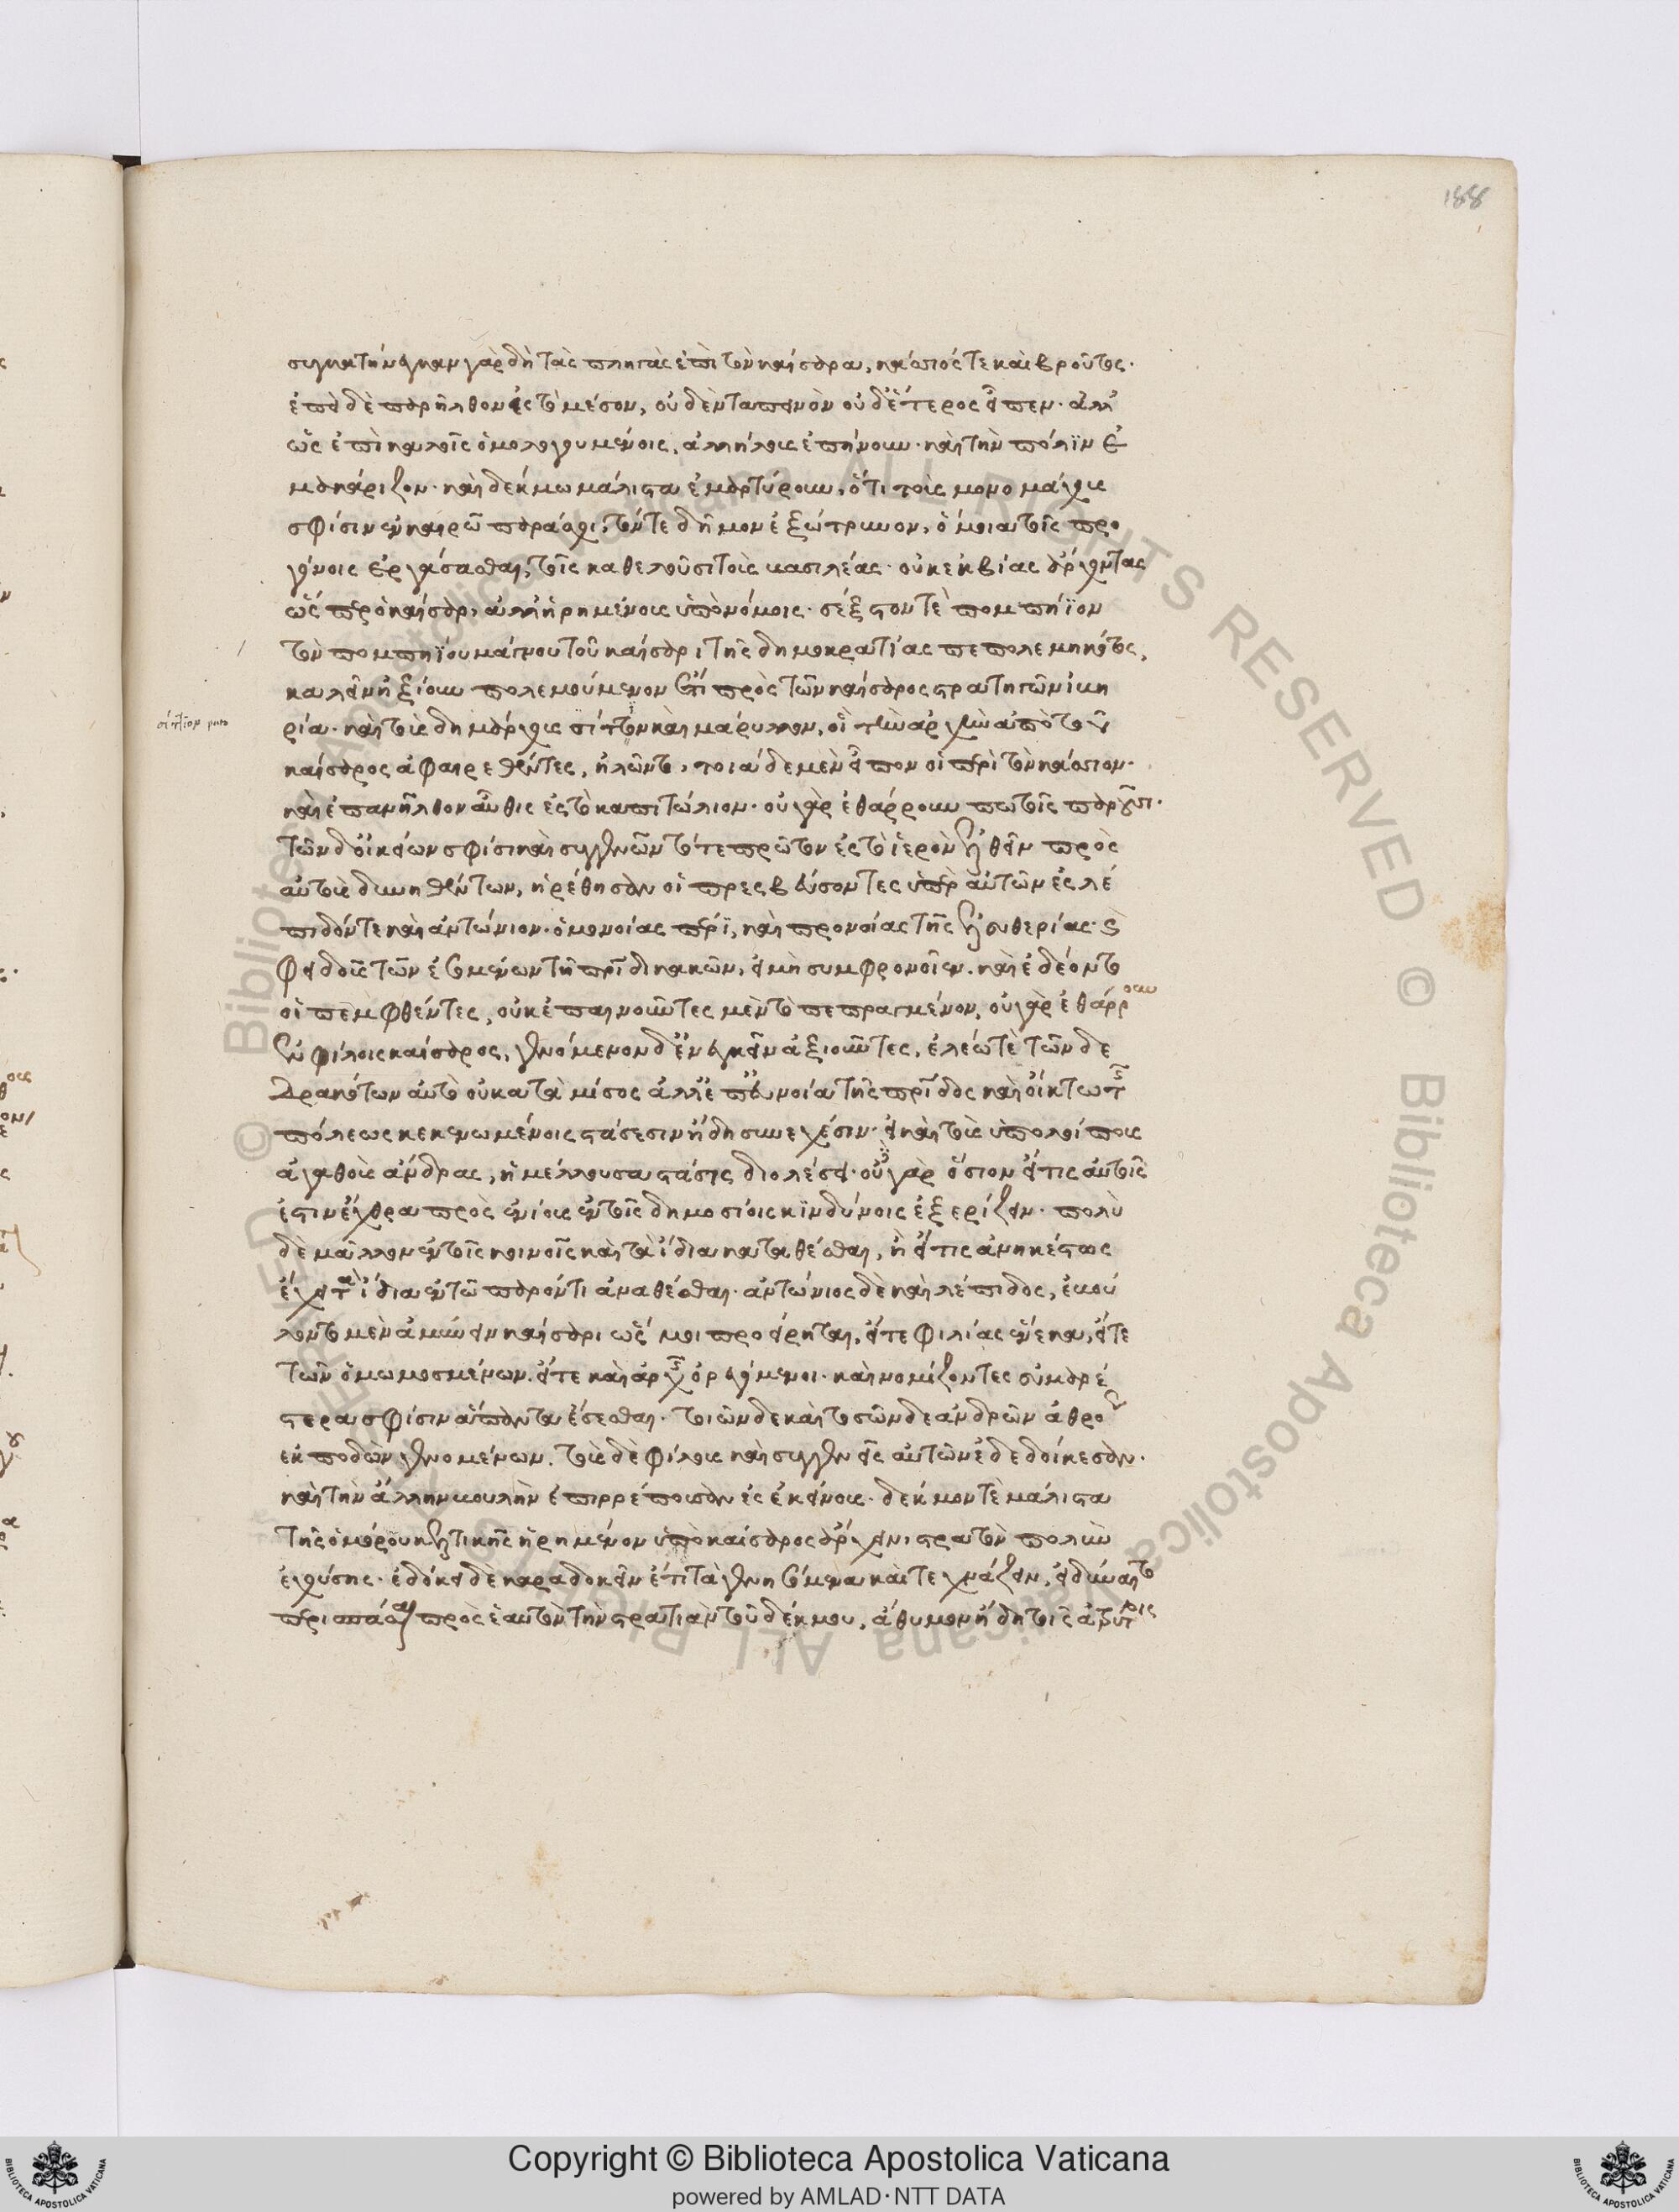 188
συγκατήνεγκαν γὰρ δὴ τὰς πληγὰς ἐπὶ τὸν καίσαρα, κάσσιός τε καὶ βροῦτος.
ἐπεὶ δὲ παρῆλθον ἐς τὸ μέσον, οὐδὲν ταπεινὸν οὐδέτερος εἶπεν. ἀλλ'
ὡς ἐπὶ καλοῖς ὁμολογουμένοις, ἀλλήλους ἐπῄνουν. καὶ τὴν πόλιν ἐ
μακάριζον. καὶ δέκμω μάλιστα ἐμαρτύρουν, ὅτι τοὺς μονομάχους
σφίσιν ἐν καιρῶ παράσχοι, τόν τε δῆμον ἐξώτρυνον, ὅμοια τοῖς προ
γόνοις ἐργάσασθαι, τοῖς καθελοῦσι τοὺς βασιλέας. οὐκ ἐκ βίας ἄρχοντας
ὥσπερ ὁ καίσαρ, ἀλλ' ᾑρημένους ὑπὸ νόμοις. σέξστον τὲ πομπήϊον
τὸν πομπηΐου μάγνου τοῦ καίσαρι τῆς δημοκρατίας πεπολεμηκότος,
καλεῖν ἠξίουν πολεμούμενον ἔτι πρὸς τῶν καίσαρος στρατηγῶν ἰβη
ρία. καὶ τοὺς δημάρχους σίττον καὶ μάρυλλον, οἳ τὴν ἀρχὴν ἀπὸ τοῦ
καίσαρος ἀφαιρεθέντες, ἠλῶντο, τοιάδε μὲν εἶπον οἱ περὶ τὸν κάσσιον.
καὶ ἐπανῆλθον αὖθις ἐς τὸ καπιτώλιον. οὐ γὰρ ἐθάρρουν πω τοῖς παροῦσι.
τῶν δ' οἰκείων σφίσι καὶ συγγενῶν τότε πρῶτον ἐς τὸ ἱερὸν ἐλθεῖν πρὸς
αὐτοὺς δυνηθέντων, ᾑρέθησαν οἱ πρεσβεύσοντες ὑπὲρ αὐτῶν ἐς λέ
πιδόν τε καὶ ἀντώνιον. ὁμονοίας πέρϊ, καὶ προνοίας τῆς ἐλευθερίας. καὶ
φειδοῦς τῶν ἐσομένων τῆ πατρίδι κακῶν, εἰ μὴ συμφρονοῖεν. καὶ ἐδέοντο
οἱ πεμφθέντες, οὐκ ἐπαινοῦντες μὲν τὸ πεπραγμένον, οὐ γὰρ ἐθάρρουν
ἐν φίλοις καίσαρος, γενόμενον δ' ἐνεγκεῖν ἀξιοῦντες, ἐλέω τὲ τῶν δε
δρακότων αὐτὸ οὐ κατὰ μῖσος ἀλλ' ἐπ' εὐνοία τῆς πατρίδος καὶ οἴκτω τῆς
πόλεως κεκενωμένοις στάσεσιν ἤδη συνεχέσιν. εἰ καὶ τοὺς ὑπολοίπους
ἀγαθοὺς ἄνδρας, ἡ μέλλουσα στάσις διολέσει. οὐ γὰρ ὅσιον εἴ τις αὐτοῖς
ἐστιν ἔχθρα πρὸς ἐνίους ἐν τοῖς δημοσίοις κινδύνοις ἐξερίζειν. πολὺ
δὲ μᾶλλον ἐν τοῖς κοινοῖς καὶ τὰ ἴδια καταθέσθαι, ἢ εἴ τις ἀνηκέστως
ἔχει τὰ ἴδια ἐν τῶ παρόντι ἀναθέσθαι. ἀντώνιος δὲ καὶ λέπιδος, ἐβού
λοντο μὲν ἀμύνειν καίσαρι ὥς μοι προείρηται, εἴτε φιλίας ἕνεκα, εἴτε
τῶν ὀμωμοσμένων. εἴτε καὶ ἀρχῆς ὀρεγόμενοι. καὶ νομίζοντες εὐμαρέ
στερα σφίσιν ἅπαντα ἔσεσθαι. τοιῶνδε καὶ τοσῶνδε ἀνδρῶν ἀθρόως
ἐκποδὼν γενομένων. τοὺς δὲ φίλους καὶ συγγενεῖς αὐτῶν ἐδεδοίκεσαν.
καὶ τὴν ἄλλην βουλὴν ἐπιρρέπουσαν ἐς ἐκείνους. δέκμον τὲ μάλιστα
τῆς ὁμόρου κελτικῆς ᾑρημένον ὑπὸ καίσαρος ἄρχειν, στρατὸν πολὺν
ἐχούσης. ἐδόκει δὲ καραδοκεῖν ἔτι τὰ γενησόμενα καὶ τεχνάζειν, εἰ δύναιντο
περισπάσαι πρὸς ἑαυτὸν τὴν στρατιὰν τοῦ δέκμου, ἄθυμον ἤδη τοῖς ἀτρύτοις
Copyright © Biblioteca Apostolica Vaticana
powered by AMLAD·NTT DATA